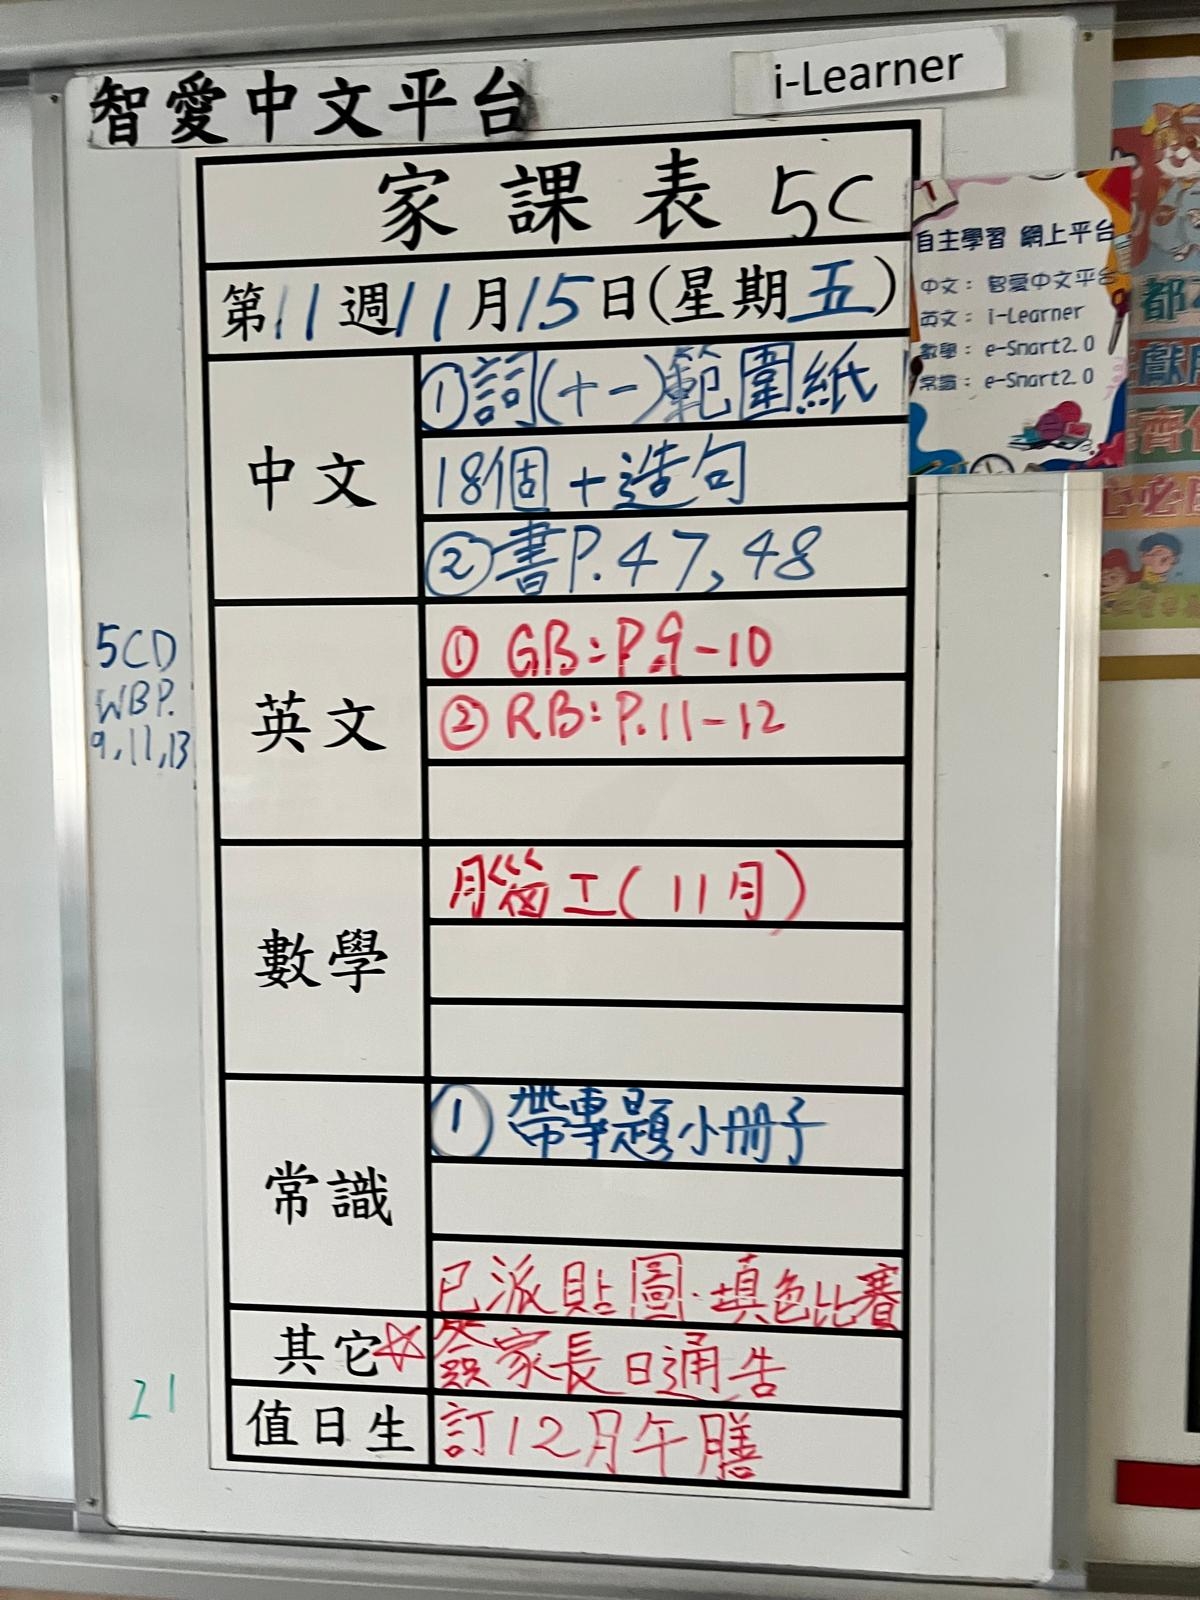 智愛中文平台
i-Learner
家課表 5C
第11週11月15日(星期五)
中文
①詞(十一)範圍紙
18個+造句
②書P.47,48
英文
① GB:P.9-10
② RB:P.11-12
數學
腦工(11月)
常識
① 帶專題小冊子
已派貼圖·填色比賽
其它☆
簽家長日通告
值日生
訂12月午膳
5CD
WBP.
9,11,13
21
自主學習 網上平台
中文: 智愛中文平台
英文: i-Learner
數學: e-Smart2.0
常識: e-Smart2.0